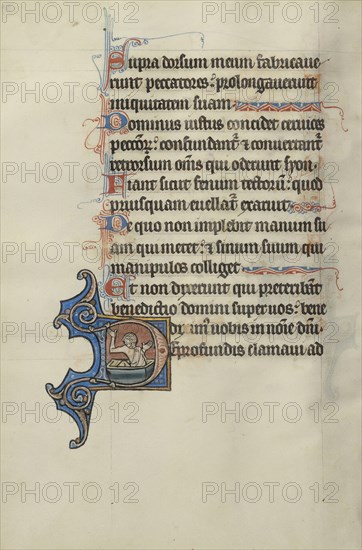 Supra dorsum meum fabricaue
runt peccatores: prolongauerunt
iniquitatem suam
Dominus iustus concidet ceruices
peccōꝝ: confundant᷑ & conuertant᷑
retrorsum om̄s qui oderunt syon
Fiant sicut fenum tectorū: quod
priusquam euellat᷑ exaruit
De quo non impleuit manum su
am qui metet: & sinum suum qui
manipulos colliget
Et non dixerunt qui preteribāt
benedictio domini super uos: bene
dixim᷒ uobis in noīe dn̄i
De profundis clamaui ad
PHOTO 12